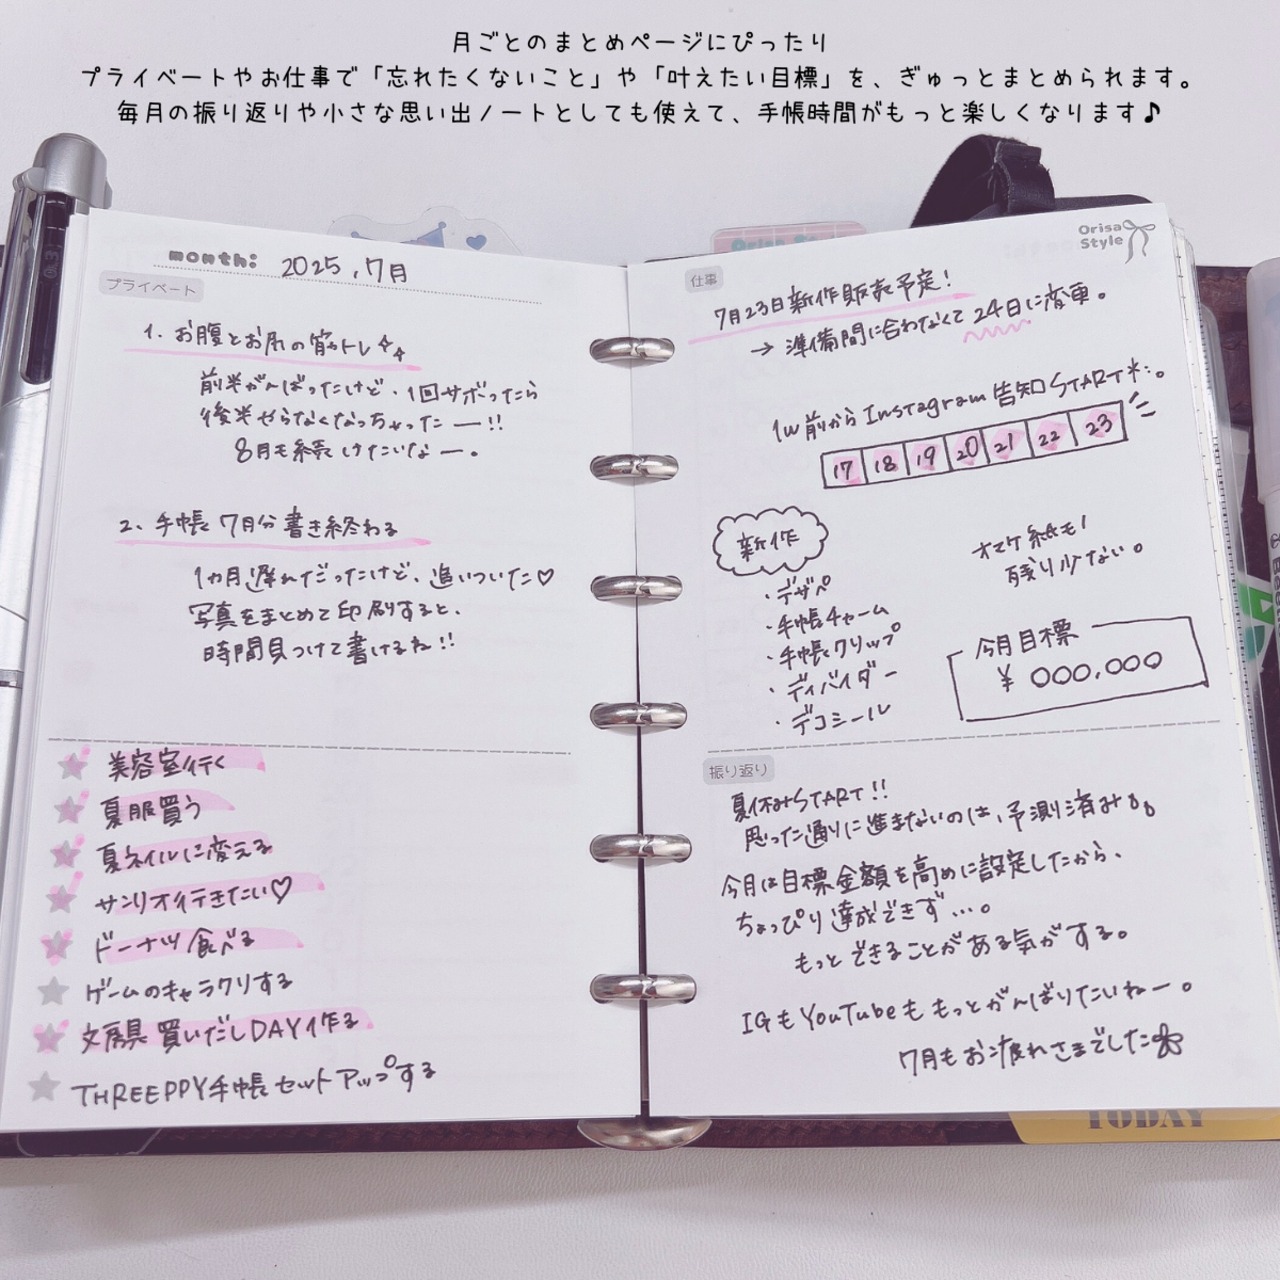 月ごとのまとめページにぴったり
プライベートやお仕事で「忘れたくないこと」や「叶えたい目標」を、ぎゅっとまとめられます。
毎月の振り返りや小さな思い出ノートとしても使えて、手帳時間がもっと楽しくなります♪
month: 2025.7月
プライベート
1. お腹とお尻の筋トレ
前半がんばったけど、1回サボったら
後半やらなくなっちゃったー!!
8月も続けたいなー。
2、手帳 7月分書き終わる
1カ月遅れだったけど、追いついた♡
写真をまとめて印刷すると、
時間見つけて書けるね!!
美容室行く
夏服買う
夏ネイルに変える
サンリオ行きたい♡
ドーナツ食べる
ゲームのキャラクリする
文房具買いだしDAY作る
THREEPPY手帳セットアップする
Orisa
Style
仕事
7月23日新作販売予定!
→ 準備間に合わなくて24日に変更。
1w前からInstagram告知START
17 18 19 20 21 22 23
新作
・デザペ
・手帳チャーム
・手帳クリップ
・ディバイダー
・デコシール
オマケ紙も!
残り少ない。
今月目標
¥ 000,000
振り返り
夏休みSTART!!
思った通りに進まないのは、予測済み
今月は目標金額を高めに設定したから、
ちょっぴり達成できず…。
もっとできることがある気がする。
IGもYouTubeももっとがんばりたいねー。
7月もお疲れさまでした
TODAY